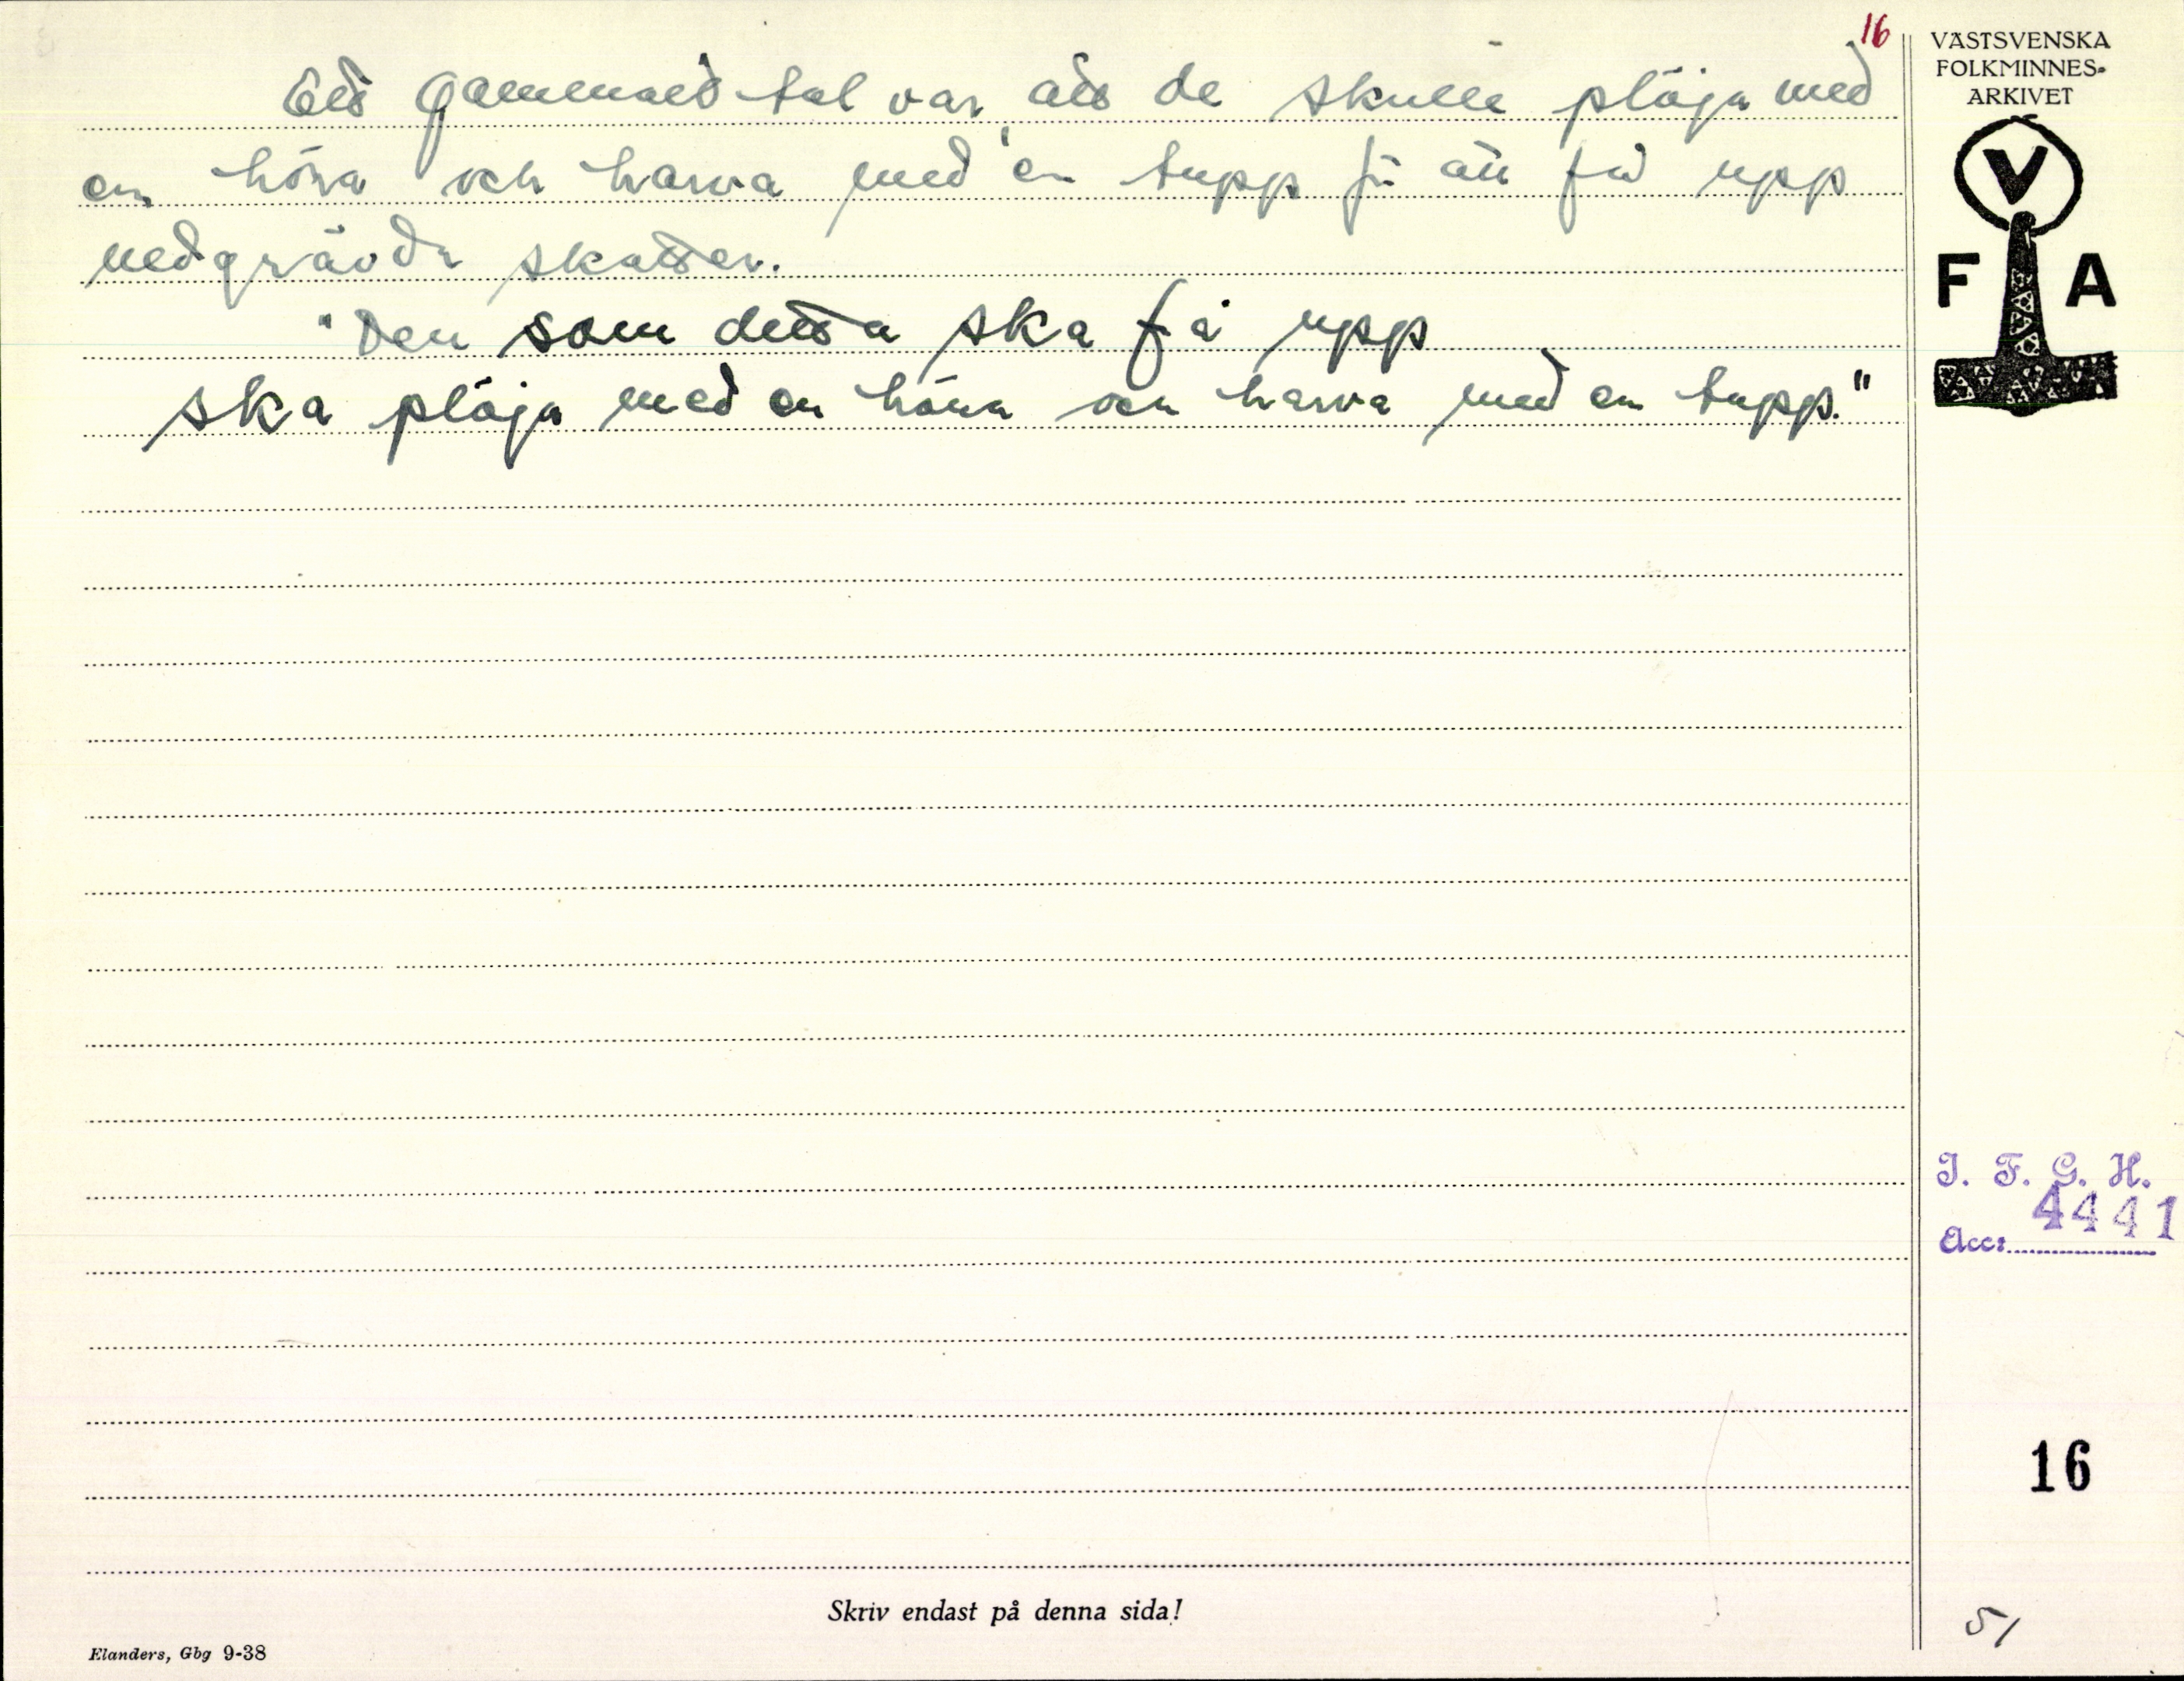 16
Ett gammalt tal var att de skulle plöja med
en höna och harva med en tupp för att få upp
nedgrävda skatter.
"Den som detta ska få upp
ska plöja med en höna och harva med en tupp."
VÄSTSVENSKA
FOLKMINNES-
ARKIVET
V
F A
I. F. G. H.
4441
Acc:
16
51
Skriv endast på denna sida!
Elanders, Gbg 9-38